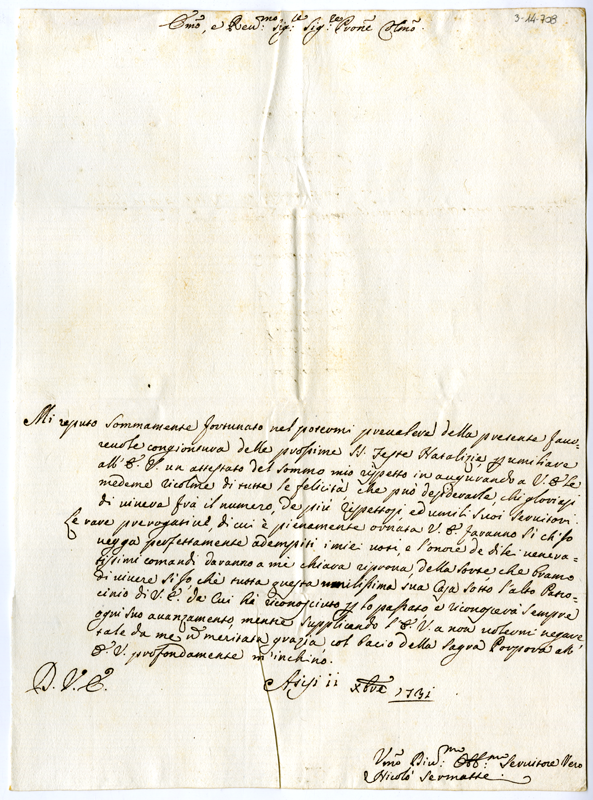 3-14-708
Emo, e Reu.mo Sig.re Sig.re Prone Colmo.
Mi reputo sommamente fortunato nel potermi preualere della presente fauo-
reuole congiontura delle prossime SS. Feste Natalizie p umiliare
all'E. V. un attestato del sommo mio rispetto in augurando a V. E. le
medeme ricolme di tutte le felicità che può desiderarle chi gloriasi
di viuere frà il numero, de più rispettosi ed umili suoi seruitori.
Le rare prerogatiue di cui è pienamente ornata V. E. faranno si ch'io
uegga perfettamente adempiti i miei uoti, e l'onore de di lei uenera-
tissimi comandi daranno a me chiara riproua della sorte che bramo
di uiuere si Io che tutta questa umilissima sua Casa sotto l'alto Patro-
cinio di V. E. da Cui hà riconosciuto p lo passato e riconoscerà sempre
ogni suo auanzamento, mentre supplicando l'E. V. a non uolermi negare
tale da me ũ meritata grazia col bacio della sagra Porpora all'
E. V. profondamente m'inchino.
D. V. E.
Asisi 11 Xbre 1731
Vmo Diu.mo Obb.mo Seruitore Vero
Nicolò Sermatte.